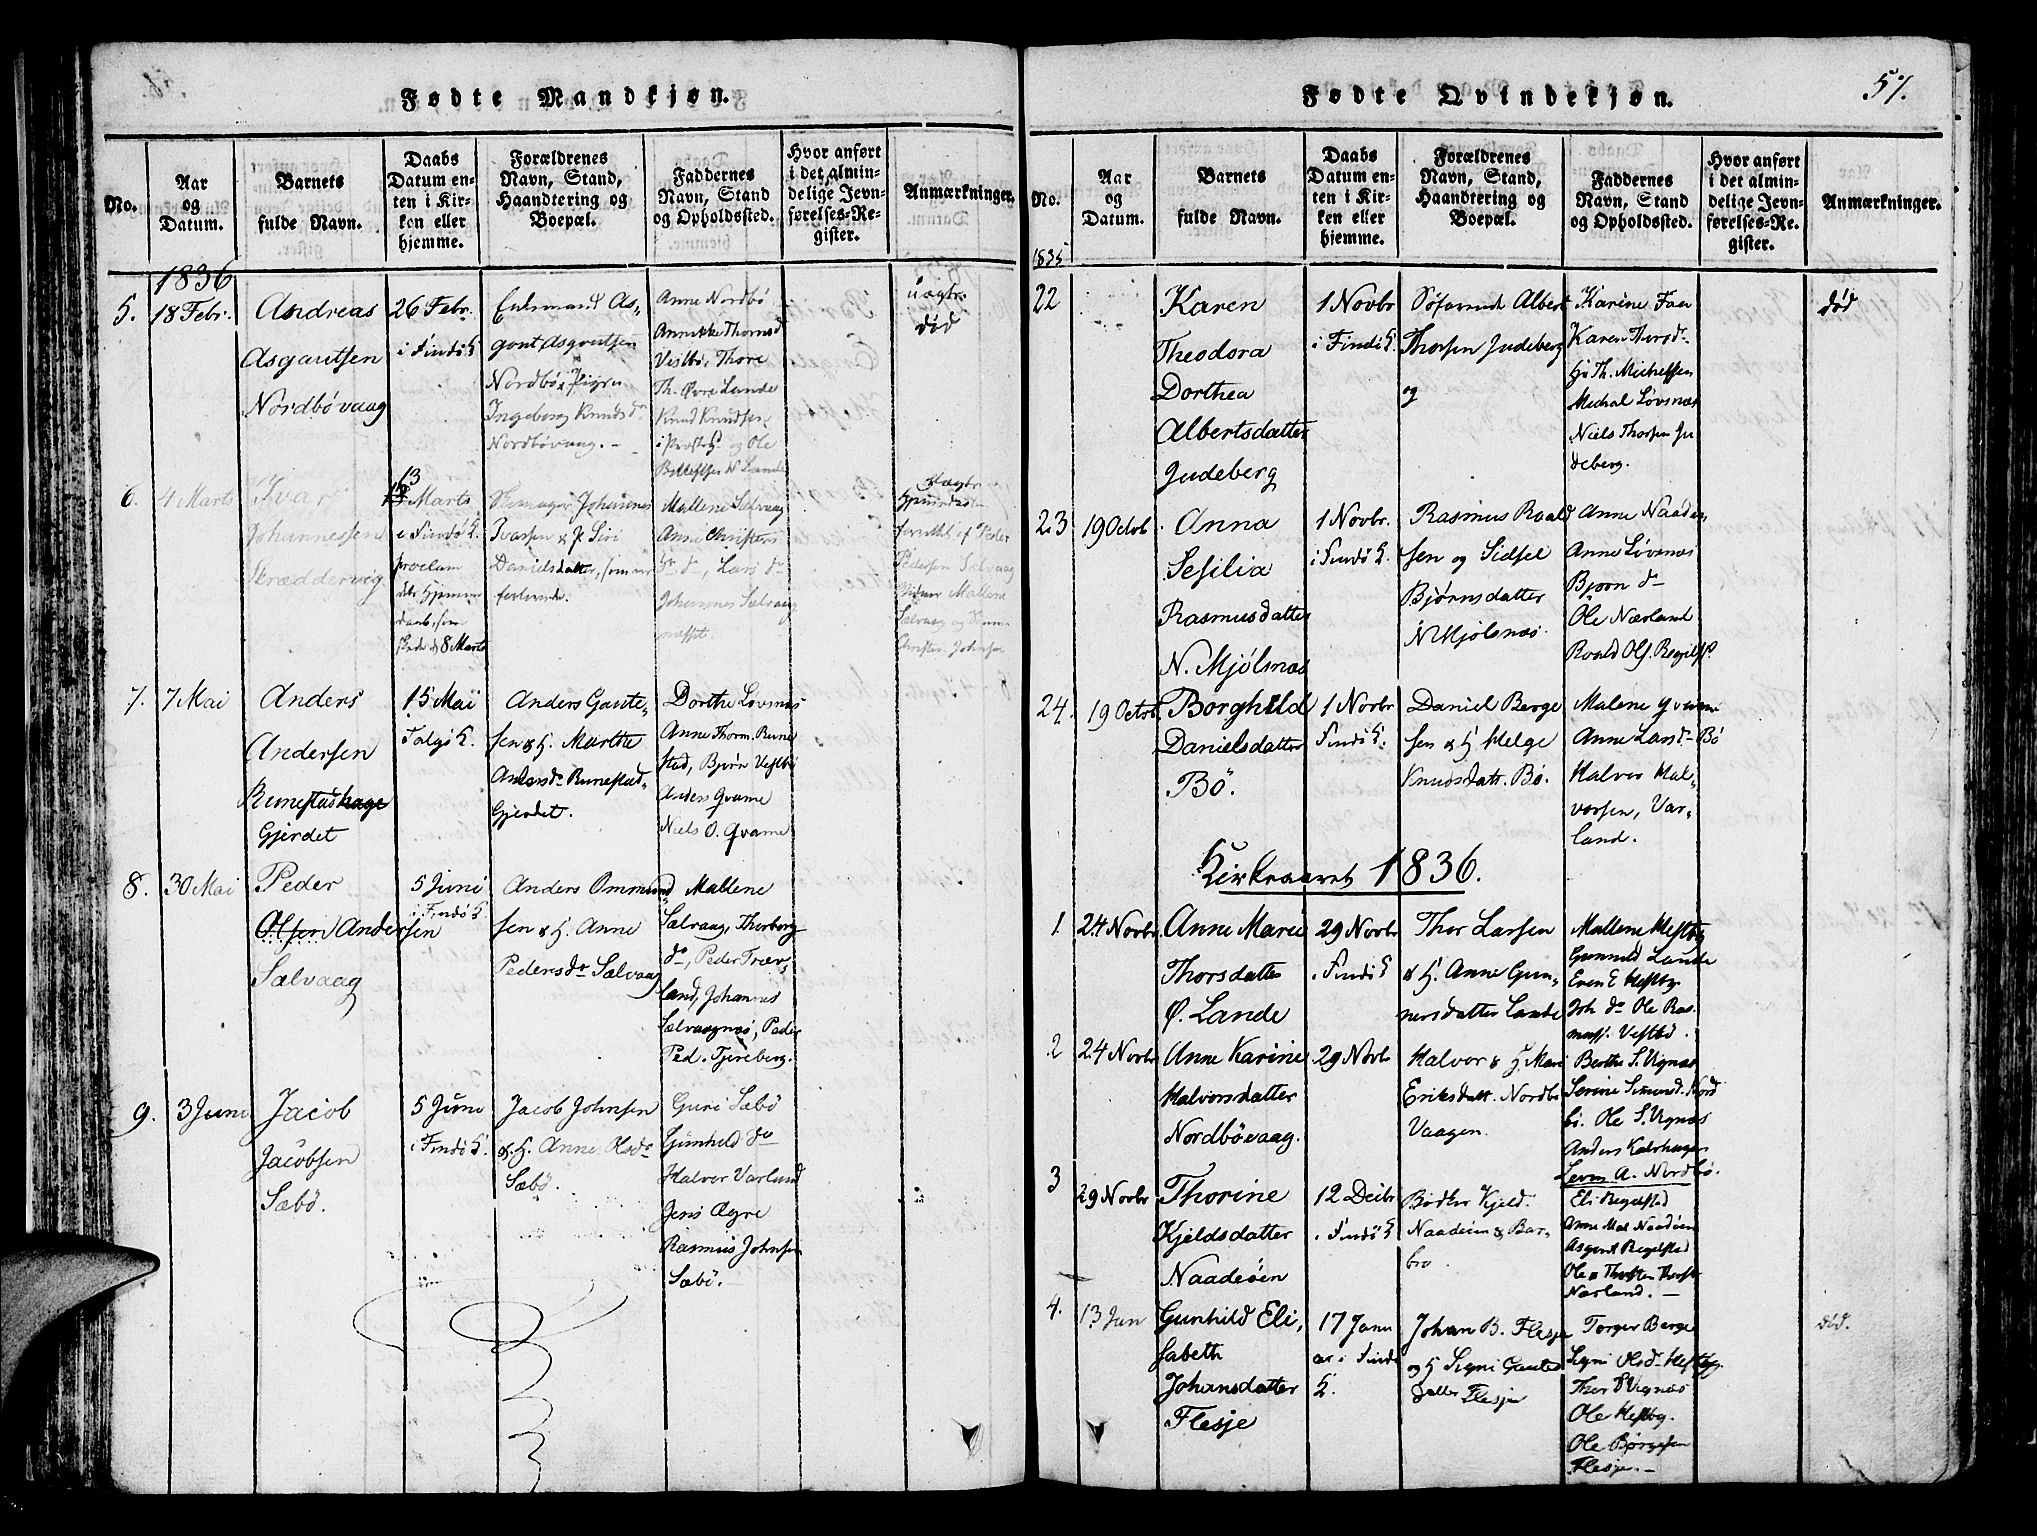 Fødte Mandkjøn.
No.
Aar
og
Datum.
Barnets
fulde Navn.
Daabs
Datum en-
ten i Kir-
ken eller
hjemme.
Forældrenes
Navn, Stand,
Haandtering og
Boepæl.
Faddernes
Navn, Stand
og Opholdssted.
Hvor anført
i det almin-
delige Jevn-
førelses-Re-
gister.
Anmærkninger.
1836
5.
18 Febr.
Andreas
Asgautsen
Nordbövaag
26 Febr.
i Findö K.
Enkemand As-
gout Asgoutsen
Nordbö & Pigen
Ingeborg Knudsdr
Nordbövaag.
Anne Nordbö
Annikke Thormsd
Vestbö, Thore
Th. Øvre Lande
Knud Knudsen
i Præsteg. og Ole
N Lande
uægte.
död
6.
4 Marts
Ivar
Johannessen
Skræddervig
13 Marts
i Findö K.
proclam
dets Hjemme
daab, som
skede d 8 Marts
Skomager Johannes
Ivarsen & P. Siri
Danielsdatter, som er
forlovede.
Mallene Selvaag
Anne Christens
dr, Lars do
Johannes Sælvaag
næsset.
uægte
Hjemmedøbt
forrettet af Peder
Pedersen Salvaag
Vidner Mallene
Sælvaag og
Christen Johnsen
7.
7 Mai
Anders
Andersen
Runestadhage
Gjerdet
15 Mai
Talgö K.
Anders Gaute-
sen & H. Marthe
Andersdr Runestad-
Gjerdet.
Dorthe Lövsnæs
Anne Thorm. Rune
stad, Bjørn Vestbö
Anders Qvame
Niels O. Qvame
8.
30 Mai
Peder
Olsen Andersen
Sælvaag
5 Juni
i Findö K.
Anders Ommund
sen & H. Anne
Pedersdr Sælvaag
Mallene
Sælvaag, Thorborg
do, Peder Træv-
land, Johannes
Sælvaagnæs, Peder
Ped. Tjereberg.
9.
3 Juni
Jacob
Jacobsen
Sæbø.
5 Juni
i Findö K.
Jacob Johnsen
& H. Anne Olsdr
Sæbø.
Guri Sæbö
Gunhild do
Halvor Varland
Jens Ægre
Rasmus Johnsen
Sæbö.
Fødte Qvindekjøn.
57.
No.
Aar
og
Datum.
Barnets
fulde Navn.
Daabs
Datum en-
ten i Kir-
ken eller
hjemme.
Forældrenes
Navn, Stand,
Haandtering og
Boepæl.
Faddernes
Navn, Stand
og Opholdssted.
Hvor anført
i det almin-
delige Jevn-
førelses-Re-
gister.
Anmærkninger.
1835
22
Karen
Theodora
Dorthea
Albertsdatter
Judeberg
1 Novbr
i Findö K.
Söfarende Albert
Thorsen Judeberg
og
Karine Faa
Karen Thordr
Hö Th. Michelsen
Michal Lövsnæs
Niels Thorsen Ju
deberg.
död
23
19 Octob.
Anna
Sesilia
Rasmusdatter
N. Mjölsnæs
1 Novbr.
i Findö K.
Rasmus Roald
sen og Sidsel
Björnsdatter
N Mjölsnæs.
Anne Naaden,
Anne Lövsnæs
Bjørn do
Ole Nærland
Roald Ols. Regilsst.
24.
19 Octob.
Borghild
Danielsdatter
Bö.
1 Novbr
Findö K.
Daniel Berge
sen & H Helge
Knudsdatt. Bö.
Malene Qvame
Anne Larsdr Bö
Halvor Hal-
vorsen, Var-
land.
Kirkeaaret 1836.
1.
24 Novbr.
Anne Marie
Thorsdatter
Ø. Lande
29 Novbr
i Findö K
Thor Larsen
& H. Anne Gun-
nersdatter Lande
Mallene Hestby
Gunnild Lande
Even E Hestby
Joh do Ole Ras.
muss. Vestbö.
2
24 Novbr
Anne Karine
Halvorsdatter
Nordbövaag.
29 Novbr
Halvor & H. Mari
Eriksdatt. Nordbö
Vaagen.
Berthe S. Vignæs
Serine Simond. Nord
bö. Ole S. Vignæs
Anders Kalvhagen
Leven A. Nordbö.
3
29 Novbr
Thorine
Kjeldsdatter
Naadeöen
12 Decbr
i Findö K
Bödker Kjeld
Naadeöen & Bar-
bro.
Eli Regelstad
Anne Mal Naadöen
Asgout Regelstad
Ole & Thosten Thorst
Nærland.
4.
13 Jan
Gunhild Eli,
sabeth
Johansdatter
Flesje
17 Janu
ar i Findö
K.
Johan B. Flesje
og H Signi Gauteds
datter Flesje
Torger Berge
Signi Olsdr Hestby
Thor S Vignæs
Ole Hestby.
Ole Børgesen
Flesje.
död.